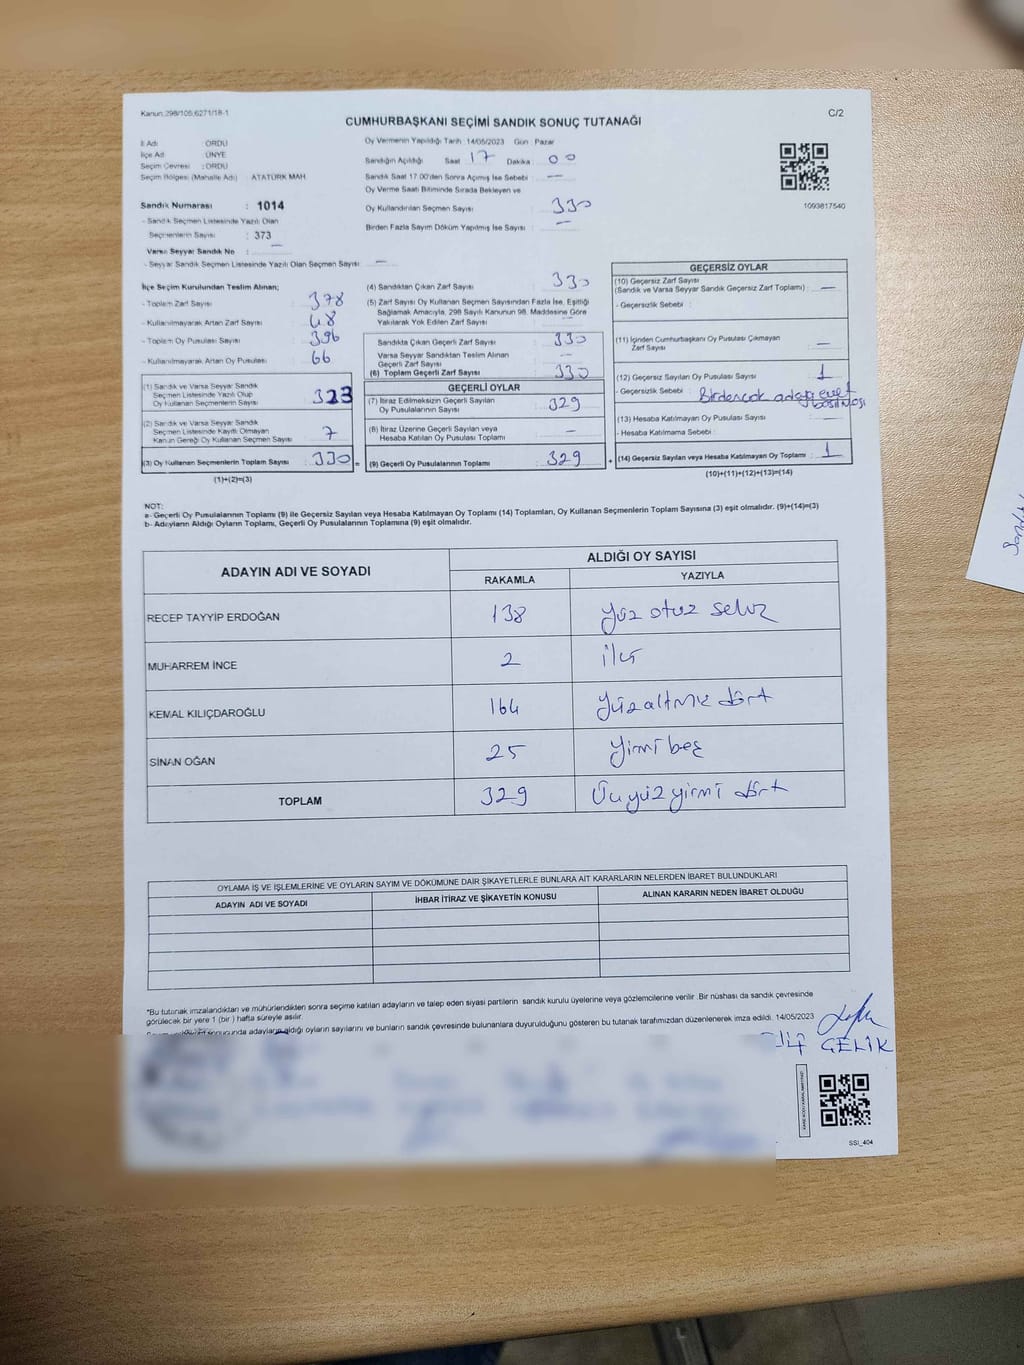 Kanun.298/105;6271/18-1
CUMHURBAŞKANI SEÇİMİ SANDIK SONUÇ TUTANAĞI
C/2
İl Adı : ORDU
İlçe Ad : ÜNYE
Seçim Çevresi : ORDU
Seçim Bölgesi (Mahalle Adı) : ATATÜRK MAH.
Sandık Numarası : 1014
- Sandık Seçmen Listesinde Yazılı Olan
Seçmenlerin Sayısı : 373
Varsa Seyyar Sandık No : —
- Seyyar Sandık Seçmen Listesinde Yazılı Olan Seçmen Sayısı : —
Oy Vermenin Yapıldığı Tarih :14/05/2023 Gün : Pazar
Sandığın Açıldığı Saat : 17 Dakika : 00
Sandık Saat 17.00'den Sonra Açımış İse Sebebi : —
Oy Verme Saati Bitiminde Sırada Bekleyen ve
Oy Kullandırılan Seçmen Sayısı : 330
Birden Fazla Sayım Döküm Yapılmış İse Sayısı : —
1093817540
İlçe Seçim Kurulundan Teslim Alınan;
- Toplam Zarf Sayısı : 378
- Kullanılmayarak Artan Zarf Sayısı : 48
- Toplam Oy Pusulası Sayısı : 396
- Kullanılmayarak Artan Oy Pusulası : 66
(1) Sandık ve Varsa Seyyar Sandık
Seçmen Listesinde Yazılı Olup
Oy Kullanan Seçmenlerin Sayısı : 323
(2) Sandık ve Varsa Seyyar Sandık
Seçmen Listesinde Kayıtlı Olmayan
Kanun Gereği Oy Kullanan Seçmen Sayısı : 7
(3) Oy Kullanan Seçmenlerin Toplam Sayısı : 330
(1)+(2)=(3)
(4) Sandıktan Çıkan Zarf Sayısı : 330
(5) Zarf Sayısı Oy Kullanan Seçmen Sayısından Fazla İse, Eşitliği
Sağlamak Amacıyla, 298 Sayılı Kanunun 98. Maddesine Göre
Yakılarak Yok Edilen Zarf Sayısı : —
Sandıkta Çıkan Geçerli Zarf Sayısı : 330
Varsa Seyyar Sandıktan Teslim Alınan
Geçerli Zarf Sayısı : —
(6) Toplam Geçerli Zarf Sayısı : 330
GEÇERLİ OYLAR
(7) İtiraz Edilmeksizin Geçerli Sayılan
Oy Pusulalarının Sayısı : 329
(8) İtiraz Üzerine Geçerli Sayılan veya
Hesaba Katılan Oy Pusulası Toplamı : —
= (9) Geçerli Oy Pusulalarının Toplamı : 329
GEÇERSİZ OYLAR
(10) Geçersiz Zarf Sayısı
(Sandık ve Varsa Seyyar Sandık Geçersiz Zarf Toplamı) : —
- Geçersizlik Sebebi :
(11) İçinden Cumhurbaşkanı Oy Pusulası Çıkmayan
Zarf Sayısı : —
(12) Geçersiz Sayılan Oy Pusulası Sayısı : 1
- Geçersizlik Sebebi : Birdençok adaya evet basılması
(13) Hesaba Katılmayan Oy Pusulası Sayısı : —
- Hesaba Katılmama Sebebi :
+ (14) Geçersiz Sayılan veya Hesaba Katılmayan Oy Toplamı : 1
(10)+(11)+(12)+(13)=(14)
NOT:
a- Geçerli Oy Pusulalarının Toplamı (9) ile Geçersiz Sayılan veya Hesaba Katılmayan Oy Toplamı (14) Toplamları, Oy Kullanan Seçmenlerin Toplam Sayısına (3) eşit olmalıdır. (9)+(14)=(3)
b- Adayların Aldığı Oyların Toplamı, Geçerli Oy Pusulalarının Toplamına (9) eşit olmalıdır.
ADAYIN ADI VE SOYADI
ALDIĞI OY SAYISI
RAKAMLA YAZIYLA
RECEP TAYYİP ERDOĞAN 138 Yüz otuz sekiz
MUHARREM İNCE 2 iki
KEMAL KILIÇDAROĞLU 164 Yüzaltmış dört
SİNAN OĞAN 25 Yirmi beş
TOPLAM 329 Üçyüzyirmi dört
OYLAMA İŞ VE İŞLEMLERİNE VE OYLARIN SAYIM VE DÖKÜMÜNE DAİR ŞİKAYETLERLE BUNLARA AİT KARARLARIN NELERDEN İBARET BULUNDUKLARI
ADAYIN ADI VE SOYADI İHBAR İTİRAZ VE ŞİKAYETİN KONUSU ALINAN KARARIN NEDEN İBARET OLDUĞU
*Bu tutanak imzalandıktan ve mühürlendikten sonra seçime katılan adayların ve talep eden siyasi partilerin sandık kurulu üyelerine veya gözlemcilerine verilir. Bir nüshası da sandık çevresinde
görülecek bir yere 1 (bir ) hafta süreyle asılır.
sonucunda adayların aldığı oyların sayılarını ve bunların sandık çevresinde bulunanlara duyurulduğunu gösteren bu tutanak tarafımızdan düzenlenerek imza edildi. 14/05/2023
ÇELİK
SSİ_404